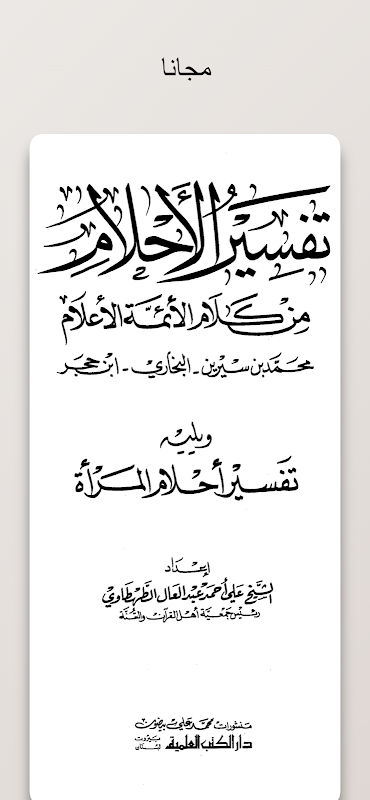 مجانا
تفسير الأحلام
من كلام الأئمة الأعلام
محمد بن سيرين - البخاري - ابن حجر
ويليه
تفسير أحلام المرأة
إعداد
الشيخ علي أحمد عبد العال الطهطاوي
رئيس جمعية أهل القرآن والسنة
منشورات محمد علي بيضون
دار الكتب العلمية
بيروت
لبنان